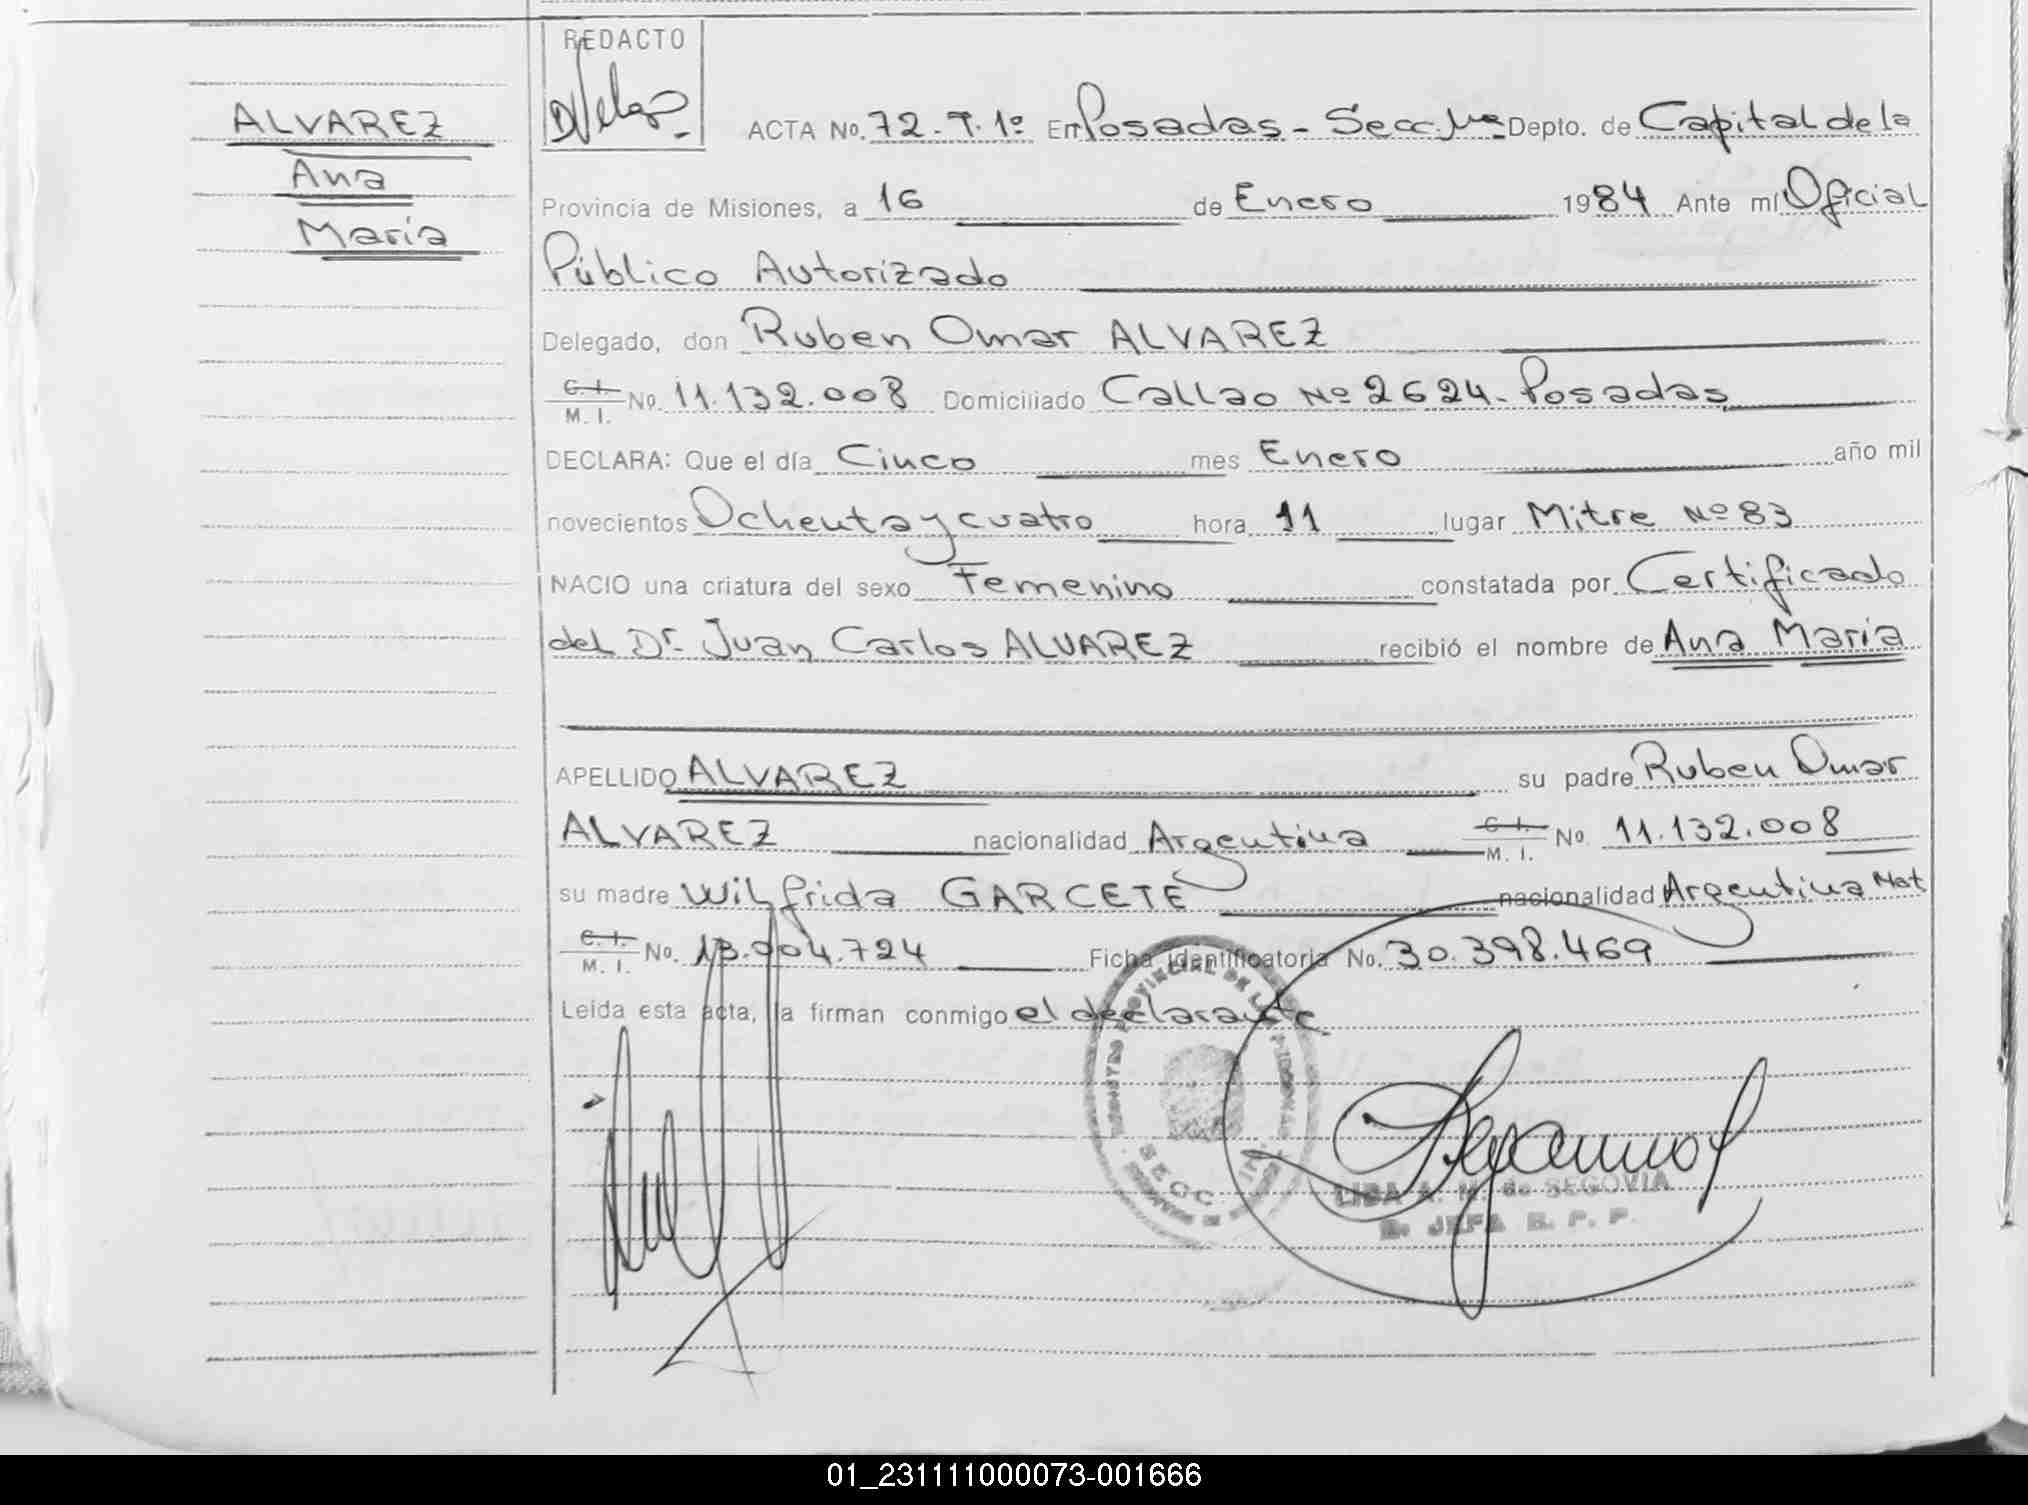 ALVAREZ
Ana
María
REDACTO
ACTA No. 72. T. 1º En Posadas - Secc. 1ra Depto. de Capital de la
Provincia de Misiones, a 16 de Enero 1984 Ante mí Oficial
Público Autorizado
Delegado, don Ruben Omar ALVAREZ
C. I. / M. I. No. 11.132.008 Domiciliado Callao Nº 2624 - Posadas
DECLARA: Que el día Cinco mes Enero año mil
novecientos Ochenta y cuatro hora 11 lugar Mitre Nº 83
NACIO una criatura del sexo Femenino constatada por Certificado
del Dr. Juan Carlos ALVAREZ recibió el nombre de Ana María
APELLIDO ALVAREZ su padre Ruben Omar
ALVAREZ nacionalidad Argentina C. I. / M. I. No. 11.132.008
su madre Wilfrida GARCETE nacionalidad Argentina Mat
C. I. / M. I. No. 13.004.724 Ficha identificatoria No. 30.398.469
Leída esta acta, la firman conmigo el declarante
SECC.
LISA A. M. de SEGOVIA
JEFA R. P. P.
01_231111000073-001666